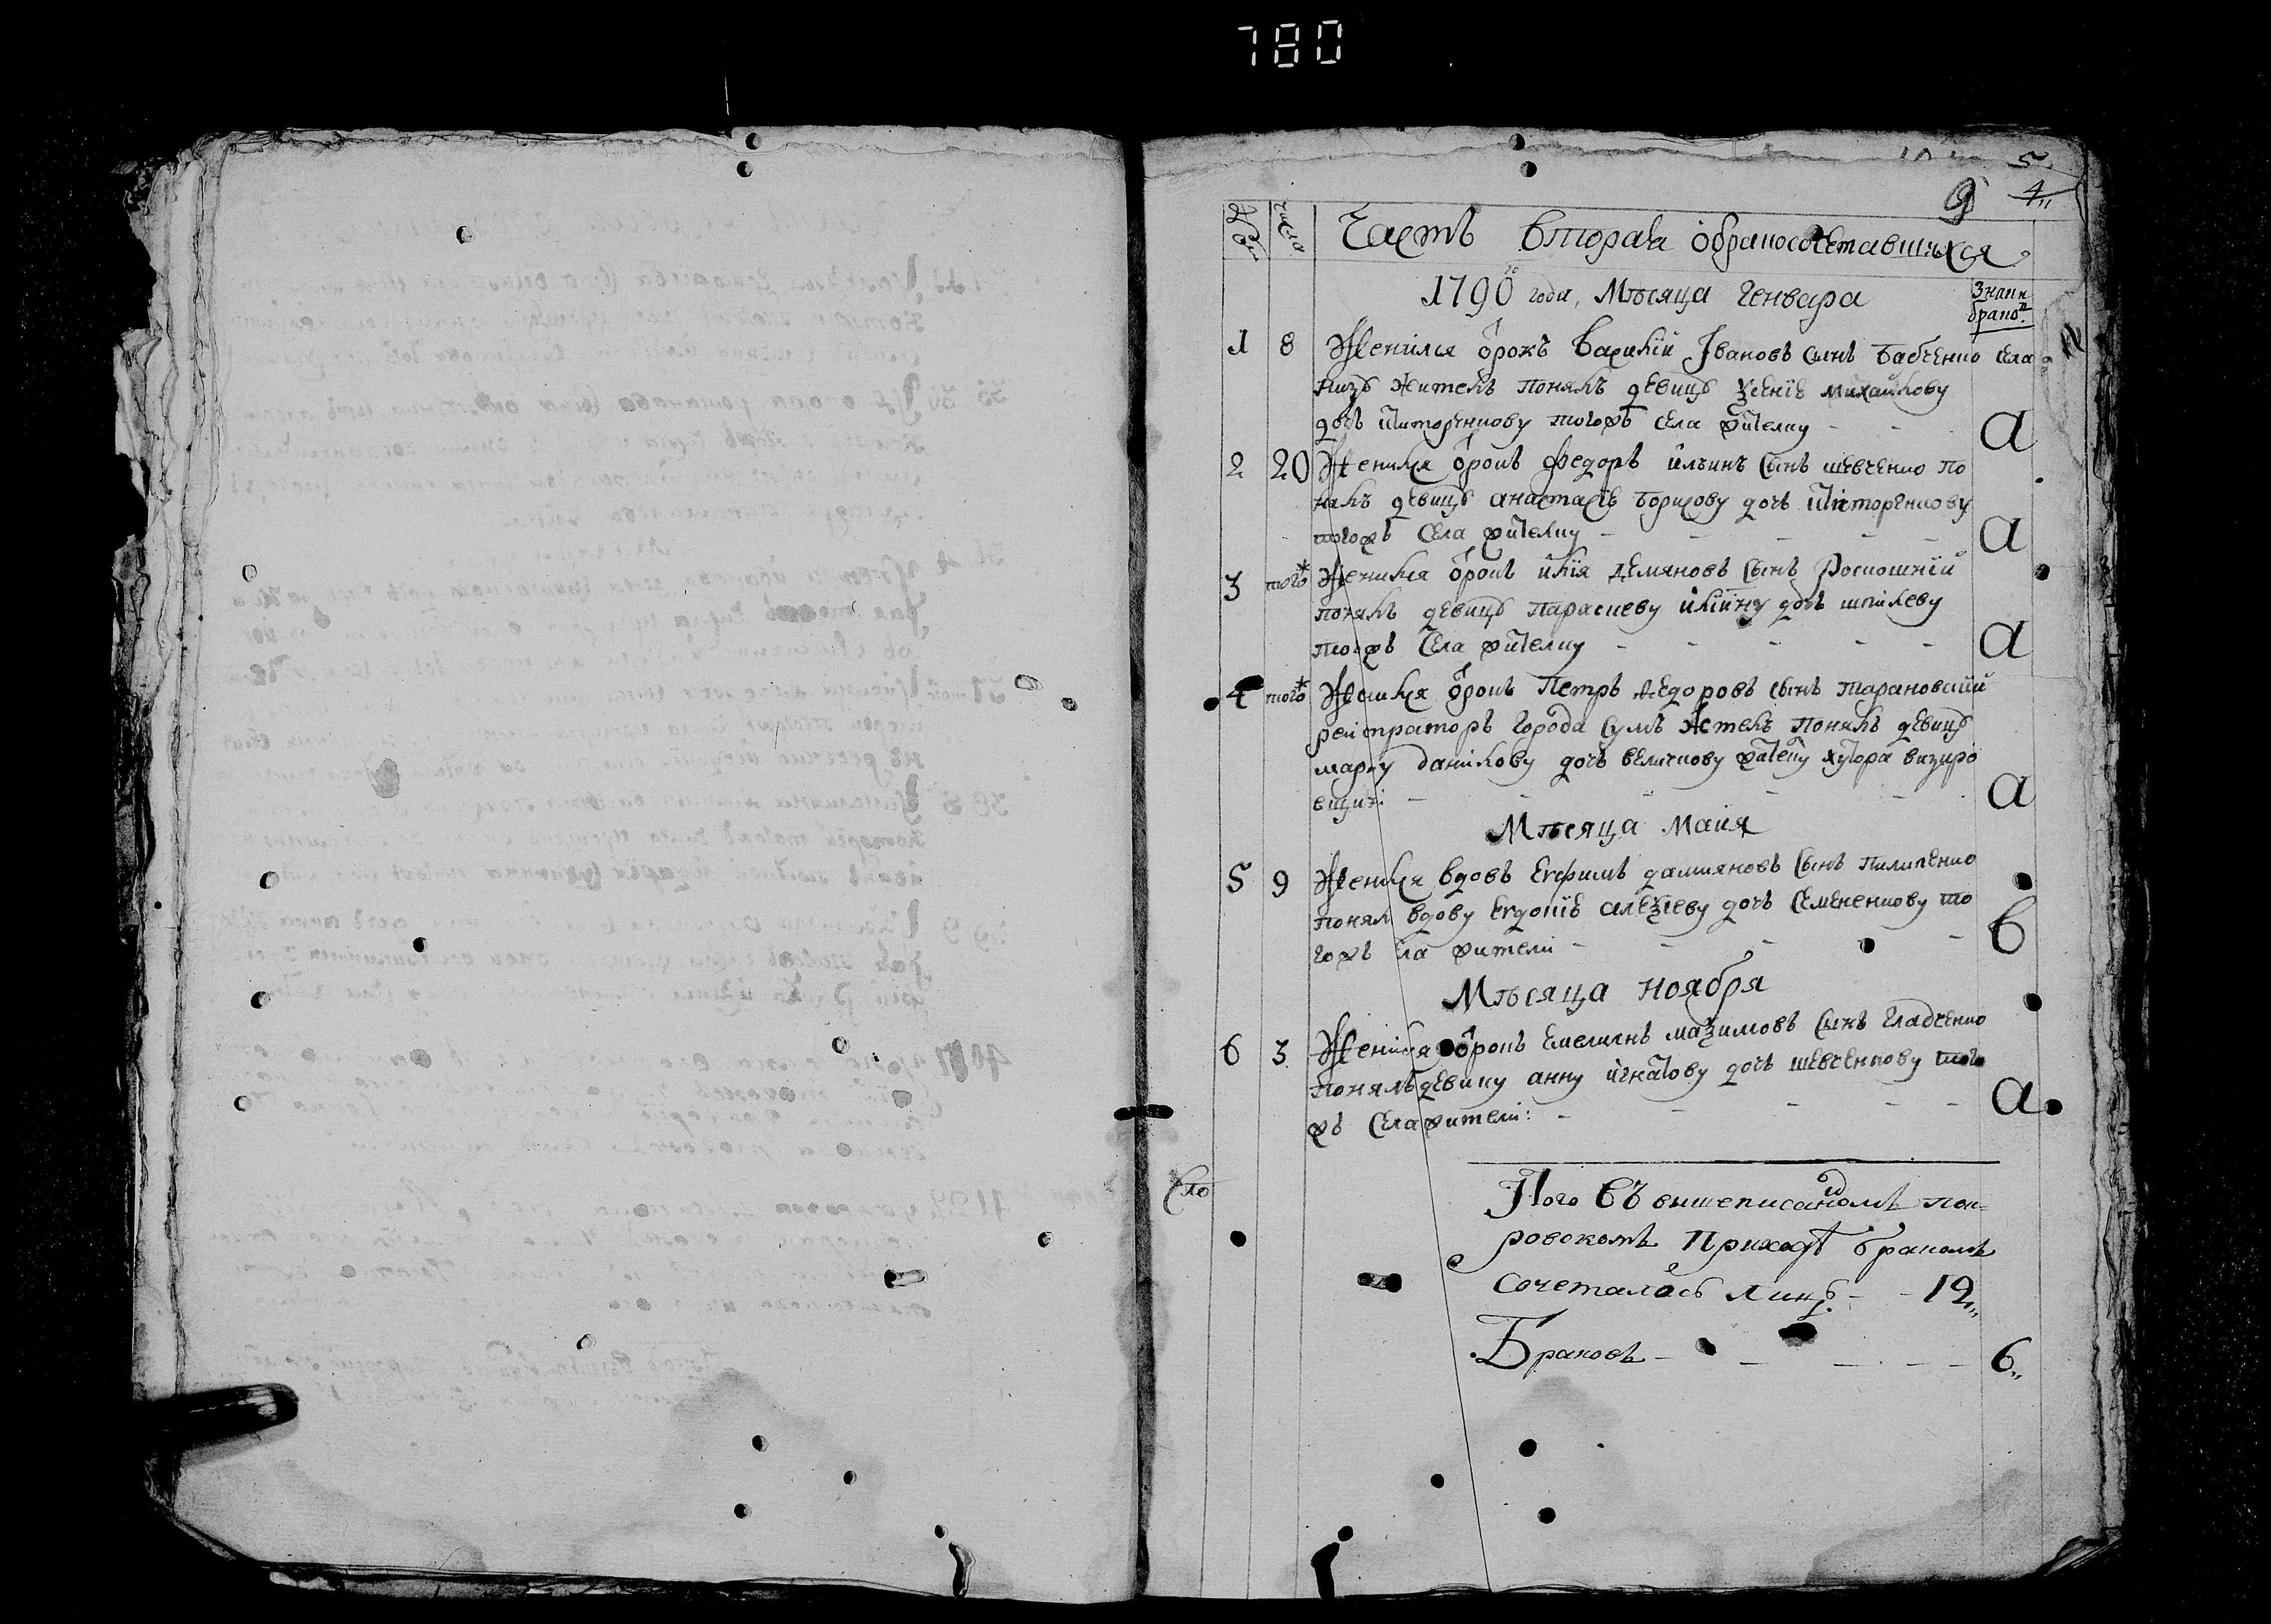 780
5
9 4
№ числа Часть вторая о бракосочетавшихся
1790 го года, Мѣсяца Генвара
Знаки браков
1 8 Женился ѡтрокъ Василій Івановъ сынъ Бабченко села
низъ житель понялъ девицу Ѯеніе михайлову
дочь тогожъ села жителку
2 20 Женился ѡтрокъ Федоръ ильинъ сынъ шевченко по
нялъ девицу анастасіе Борисову дочь
тогожъ села жителку
3 того ж Женился ѡтрокъ илія демяновъ сынъ Роскошній
понялъ девицу параскеву иліину дочь шпилеву
тогожъ села жителку
4 того ж Женился ѡтрокъ Петръ Федоровъ сынъ тарановскій
регистраторъ города сумъ житель понялъ девицу
марѳу данилову дочь величкову жителку хутора визиро
вщини
а
а
а
а
Мѣсяца Маия
5 9 Женился вдовъ Евфимъ даміяновъ сынъ пилипенко
понял вдову Евдокіе алеѯіеву дочь Семененкову то
гожъ села жители
в
Мѣсяца ноября
6 3 Женился ѡтрокъ Емелиянъ маѯимовъ сынъ Гладченко
понялъ девицу анну игнатову дочь шевченкову того
жъ села жители:
а
Того въ вишеписанномъ пок=
ровскомъ приходѣ бракомъ
сочеталось лицъ - - 12
Браковъ - - - - 6